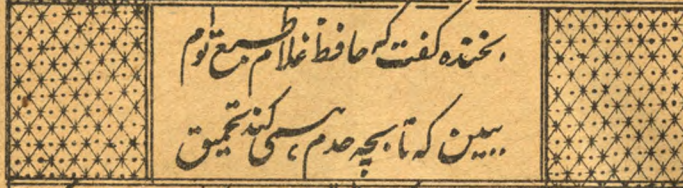 بخنده گفت که حافظ غلام طبع توام
ببین که تا بچه حدم همی کند تحمیق